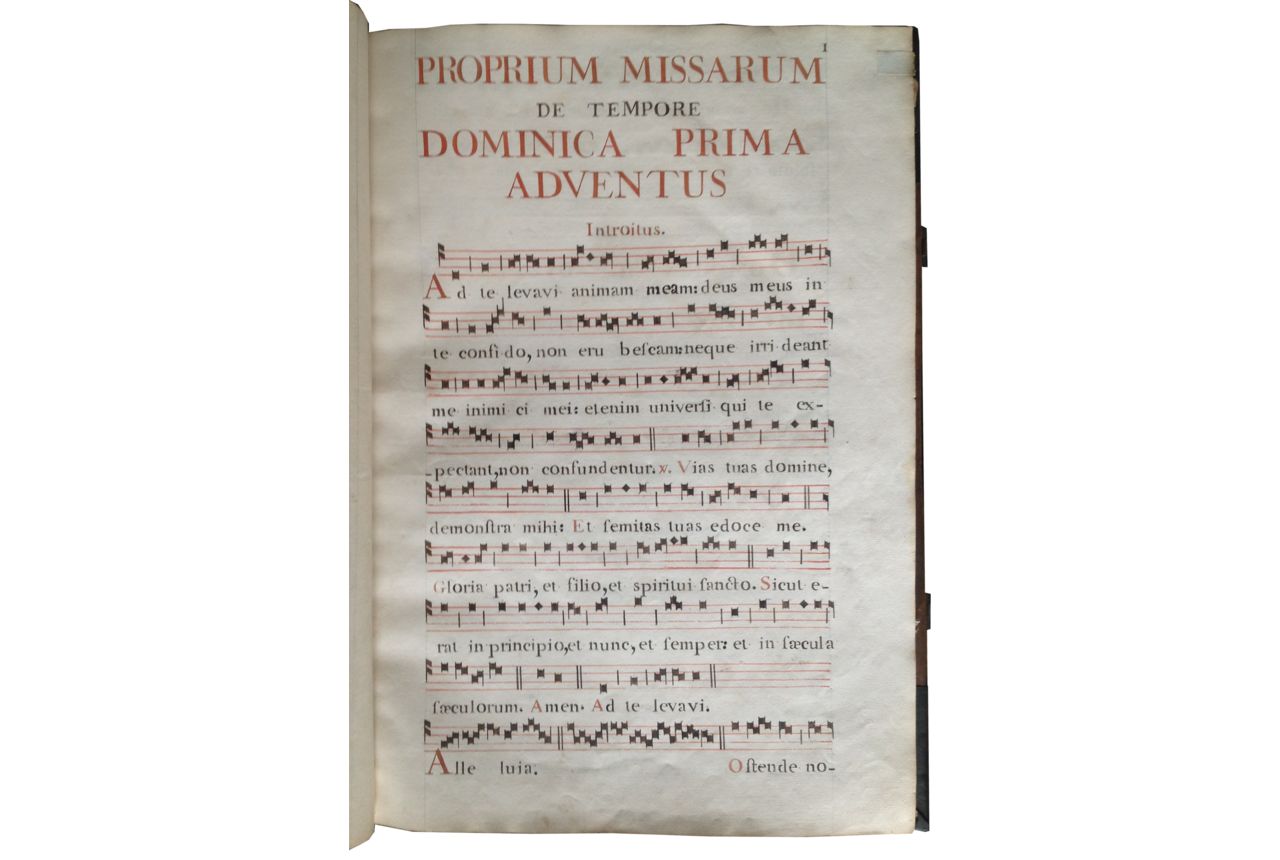 1
PROPRIUM MISSARUM
DE TEMPORE
DOMINICA PRIMA
ADVENTUS
Introitus.
Ad te levavi animam meam: deus meus in
te confido, non eru beſcam: neque irri deant
me inimi ci mei: etenim univerſi qui te ex-
-pectant, non confundentur. ℣. Vias tuas domine,
demonſtra mihi: Et ſemitas tuas edoce me.
Gloria patri, et filio, et spiritui ſancto. Sicut e-
rat in principio, et nunc, et ſemper: et in ſæcula
ſæculorum. Amen. Ad te levavi.
Alle luia. Oſtende no-